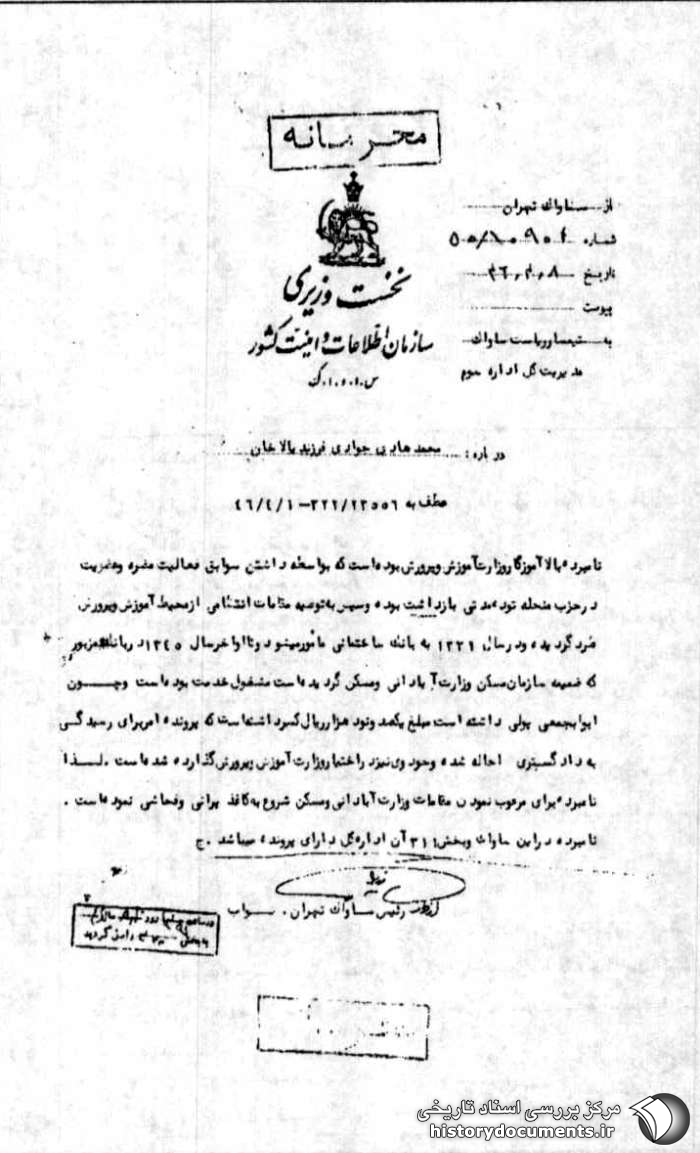 محرمانه
از ساواك تهران
شماره
تاريخ ۴۶،۴،۸
پيوست
نخست وزيرى
سازمان اطلاعات و امنيت كشور
س.ا.و.ا.ك
به تيمسار رياست ساواك
مديريت كل اداره سوم
درباره: محمد هادى جوادى فرزند بالاخان
عطف به ۳۲۲/۲۳۵۵۶-۴۶/۴/۱
نامبرده بالا آموزگار وزارت آموزش و پرورش بوده است كه بواسطه داشتن سوابق فعاليت مضره و عضويت
در حزب منحله توده مدتى بازداشت بوده و سپس به توصيه مقامات انتظامى از محيط آموزش و پرورش
طرد گرديده و در سال ۱۳۳۶ به بانك ساختمانى مأمور ميشود و تا اواخر سال ۱۳۴۵ در بانك مزبور
كه ضميمه سازمان مسكن وزارت آبادانى و مسكن گرديده است مشغول خدمت بوده است و چون
ابوابجمعى پولى داشته است مبلغ يكصد و نود هزار ريال كسر داشته است كه پرونده امر براى رسيدگى
به دادگسترى احاله شده و خود وى نيز در اختيار وزارت آموزش و پرورش گذارده شده است. لذا
نامبرده براى مرعوب نمودن مقامات وزارت آبادانى و مسكن شروع به كاغذ پرانى و فحاشى نموده است.
نامبرده در اين ساواك و بخش ۳۱۱ آن اداره كل داراى پرونده ميباشد. ج
رئيس ساواك تهران. نواب
مركز بررسى اسناد تاريخى
historydocuments.ir